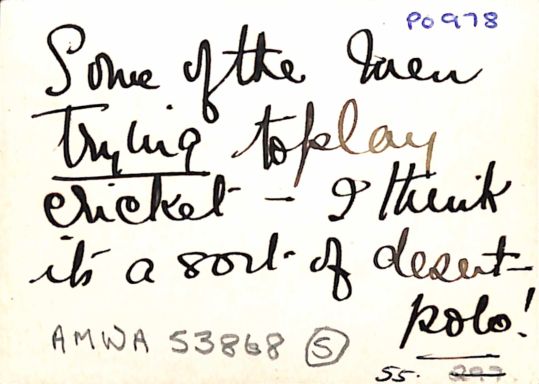 PO978
Some of the men
trying to play
cricket - I think
it's a sort of desert-
polo!
AMWA 53868 S
55. 297